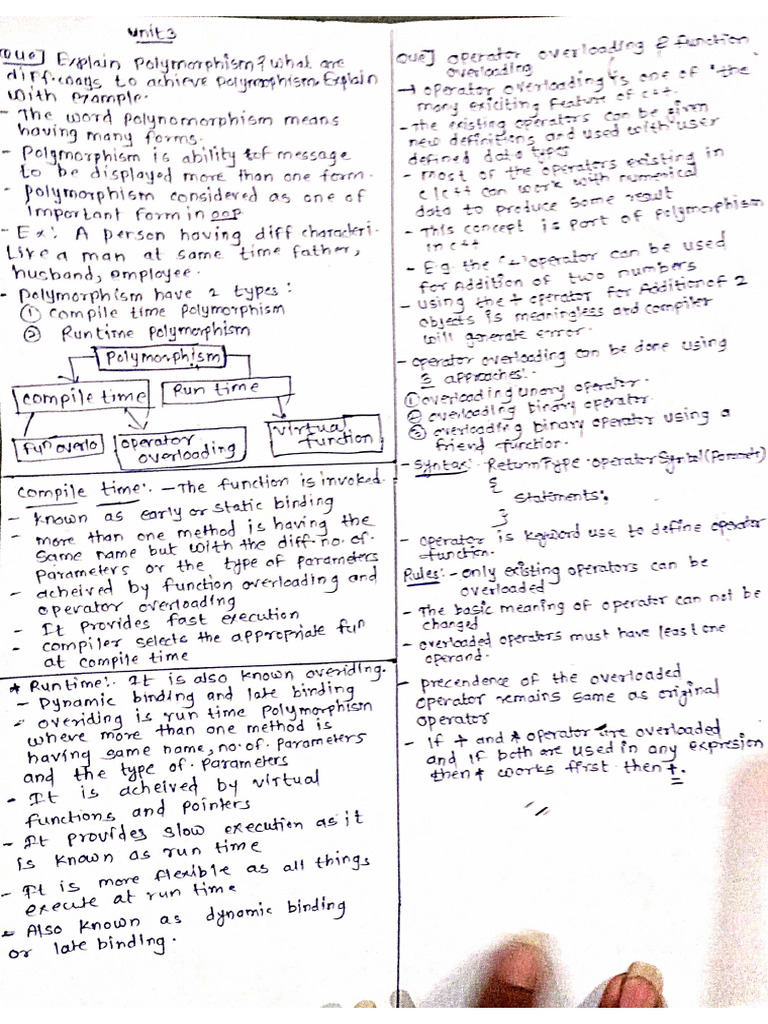 Unit 3
Que] Explain Polymorphism? What are
diff. ways to achieve polymorphism. Explain
with example.
- The word polynomorphism means
having many forms.
- Polymorphism is ability tof message
to be displayed more than one form.
- polymorphism considered as one of
important form in oop
- Ex: A person having diff characteri.
Like a man at same time father,
husband, employee.
- Polymorphism have 2 types:
① Compile time polymorphism
② Runtime polymorphism
Polymorphism
compile time
Run time
Fun overlo
operator
overloading
virtual
function
Compile time:. - The function is invoked.
- known as early or static binding
- more than one method is having the
same name but with the diff. no. of.
parameters or the type of parameters
- acheived by function overloading and
operator overloading
- It provides fast execution
- compiler selects the appropriate fun
at compile time
* Runtime:. It is also known overiding.
- Dynamic binding and late binding
- overiding is run time polymorphism
where more than one method is
having same name, no. of. parameters
and the type of. parameters
- It is acheived by virtual
functions and pointers
- It provides slow execution as it
is known as run time
- It is more flexible as all things
execute at run time
- Also known as dynamic binding
or late binding.
Que] operator overloading & function
overloading
→ operator overloading is one of the
many exiciting feature of c++.
- The existing operators can be given
new definitions and used with user
defined data types
- most of the operators existing in
c/c++ can work with numerical
data to produce some result
- This concept is part of polymorphism
in c++
- E.g. the operator can be used
for Addition of two numbers
- using the + operator for Addition of 2
objects is meaningless and compiler
will generate error.
- operator overloading can be done using
3 approaches:.
① overloading unary operator.
② overloading binary operator.
③ overloading binary operator using a
friend function.
- Syntax: ReturnType operator
{
statements;
}
- operator is keyword use to define operator
function.
Rules:- only existing operators can be
overloaded
- The basic meaning of operator can not be
changed
- overloaded operators must have least one
operand.
- precendence of the overloaded
operator remains same as original
operator
- If + and * operator are overloaded
and if both are used in any expresion
then * works first then +.